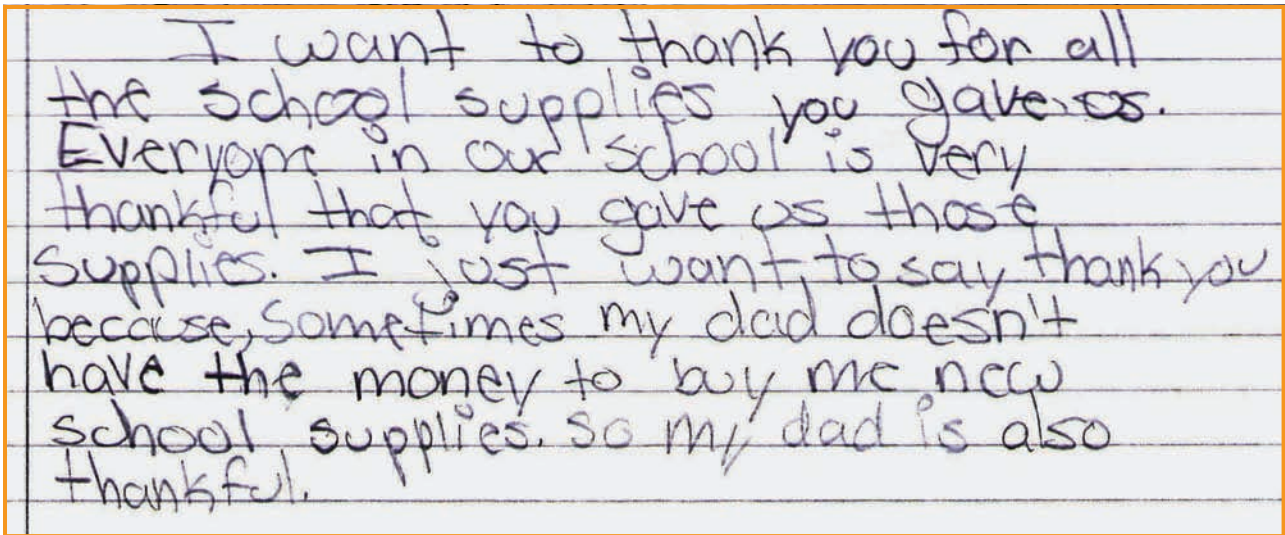 I want to thank you for all
the school supplies you gave us.
Everyone in our school is very
thankful that you gave us those
supplies. I just want to say thank you
because, sometimes my dad doesn't
have the money to buy me new
school supplies. So my dad is also
thankful.